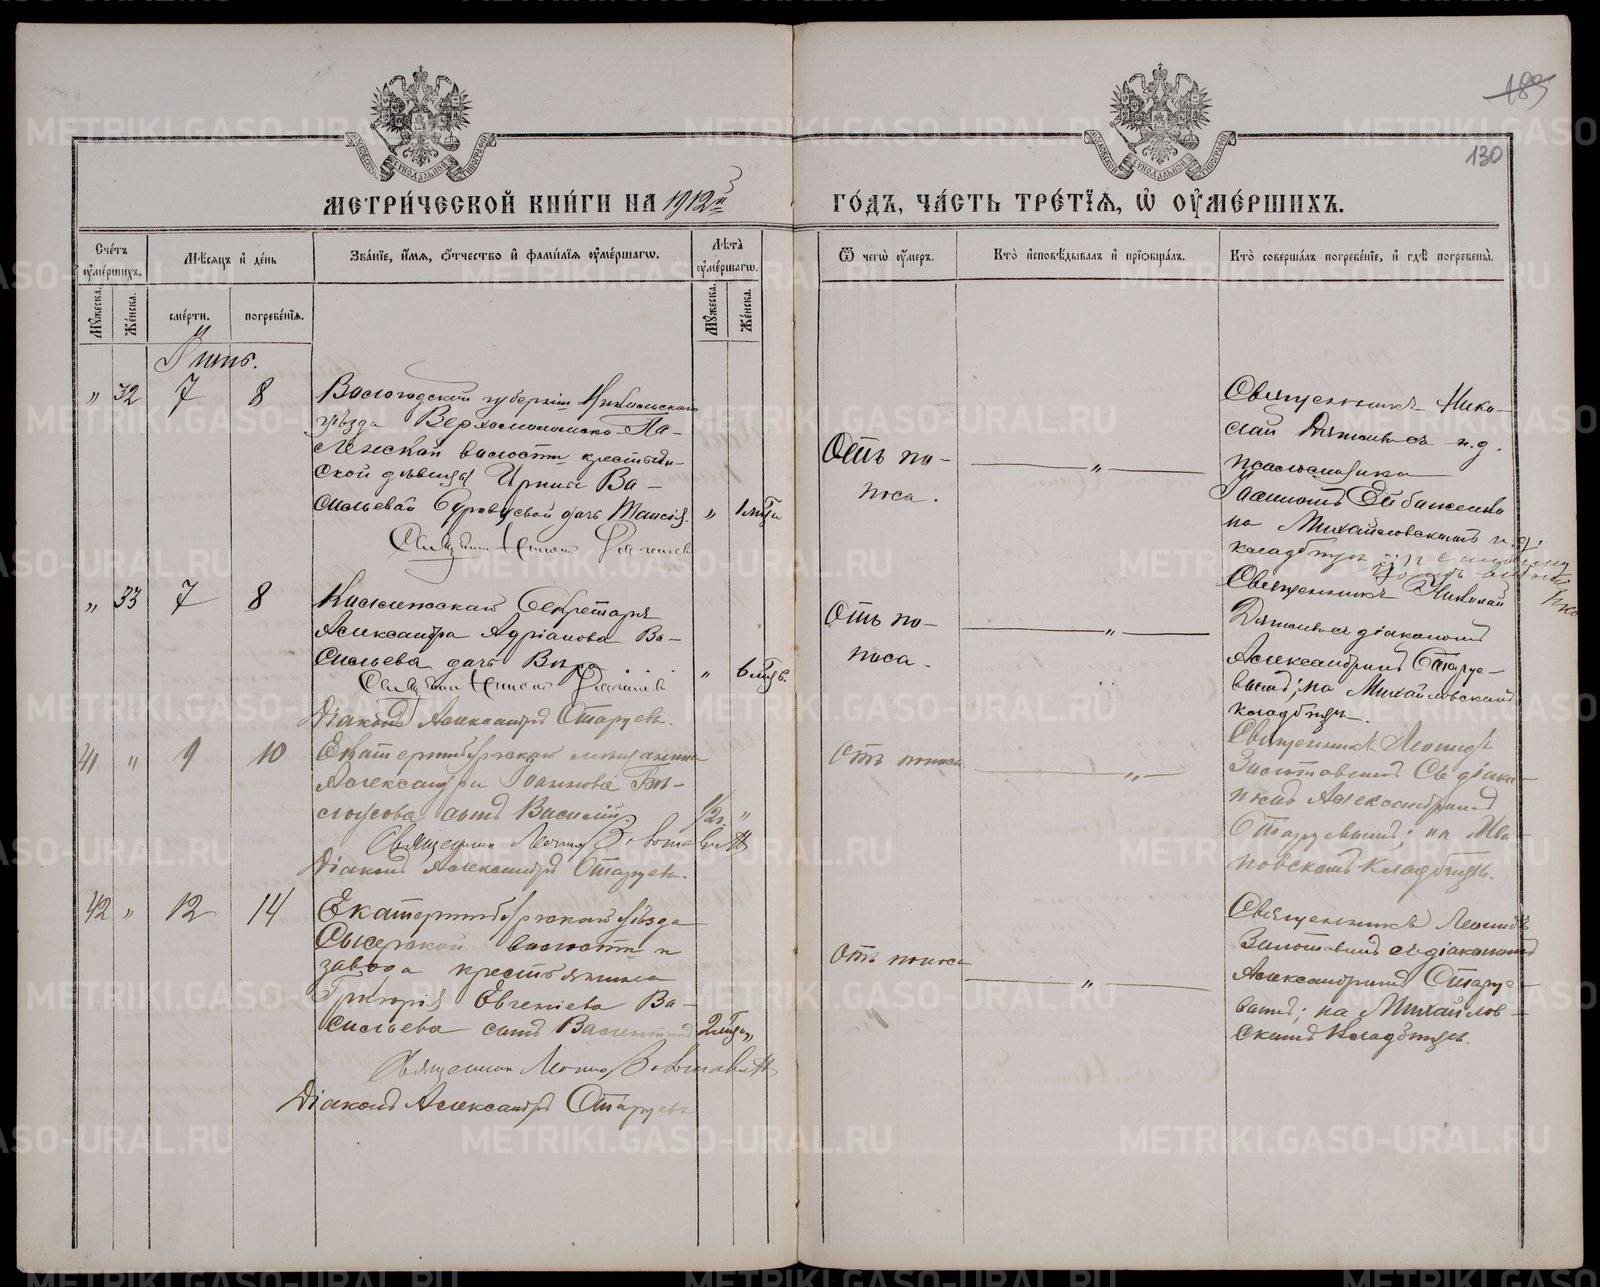 183
130
МЕТРИ́ЧЕСКОЙ КНИ́ГИ НА 1912й
ГО́ДЪ, ЧА́СТЬ ТРЕ́ТЇѦ, Ѡ҆ ОУ҆МЕ́РШИХЪ.
Сче́тъ оу҆ме́ршихъ.
Мꙋ́жеска.
Же́нска.
Мѣ́сѧцъ и҆ де́нь
сме́рти.
погребе́нїѧ.
Зва́нїе, и҆́мѧ, ѻ҆́тчество и҆ фами́лїѧ оу҆ме́ршагѡ.
Лѣ́та оу҆ме́ршагѡ.
Мꙋ́жеска.
Же́нска.
Ѿ чегѡ̀ оу҆́меръ.
Кто̀ и҆сповѣ́дывалъ и҆ прїѡбща́лъ.
Кто̀ соверша́лъ погребе́нїе, и҆ гдѣ̀ погребены̀.
Іюнь.
" 32 7 8
Вологодской губернiи Никольскаго
уѣзда Верхо
ленской волости крестьян-
ской дѣвицы Ирины Ва-
сильевой дочь Таисiя. "
Отъ по-
носа.
"
Священникъ Нико-
лай п.д.
псаломщика
на Михайловскомъ
кладбищѣ
" 33 7 8
Секретаря
Александра Адріанова Ва-
сильева дочь Вѣра . . . "
Діаконъ Александръ Старцевъ.
Отъ по-
носа.
"
Священникъ Николай
діакономъ
Александромъ Старце-
вымъ; на Михайловскомъ
кладбищѣ.
41 " 9 10
Екатеринбургскаго мѣщанина
Александра Іоаннова Бѣ-
лоусова сынъ Василій 1/2 г. "
Священникъ Леонидъ
Діаконъ Александръ Старцевъ.
Отъ поноса
"
Священникъ Леонидъ
съ діако-
номъ Александромъ
Старцевымъ; на Ива-
новскомъ кладбищѣ.
42 " 12 14
Екатеринбургскаго уѣзда
Сысертской волости и
завода крестьянина
Григорія Евгеніева Ва-
сильева сынъ Валентинъ "
Священникъ Леонидъ
Діаконъ Александръ Старцевъ
Отъ поноса
"
Священникъ Леонидъ
съ діакономъ
Александромъ Старце-
вымъ; на Михайлов-
скомъ кладбищѣ.